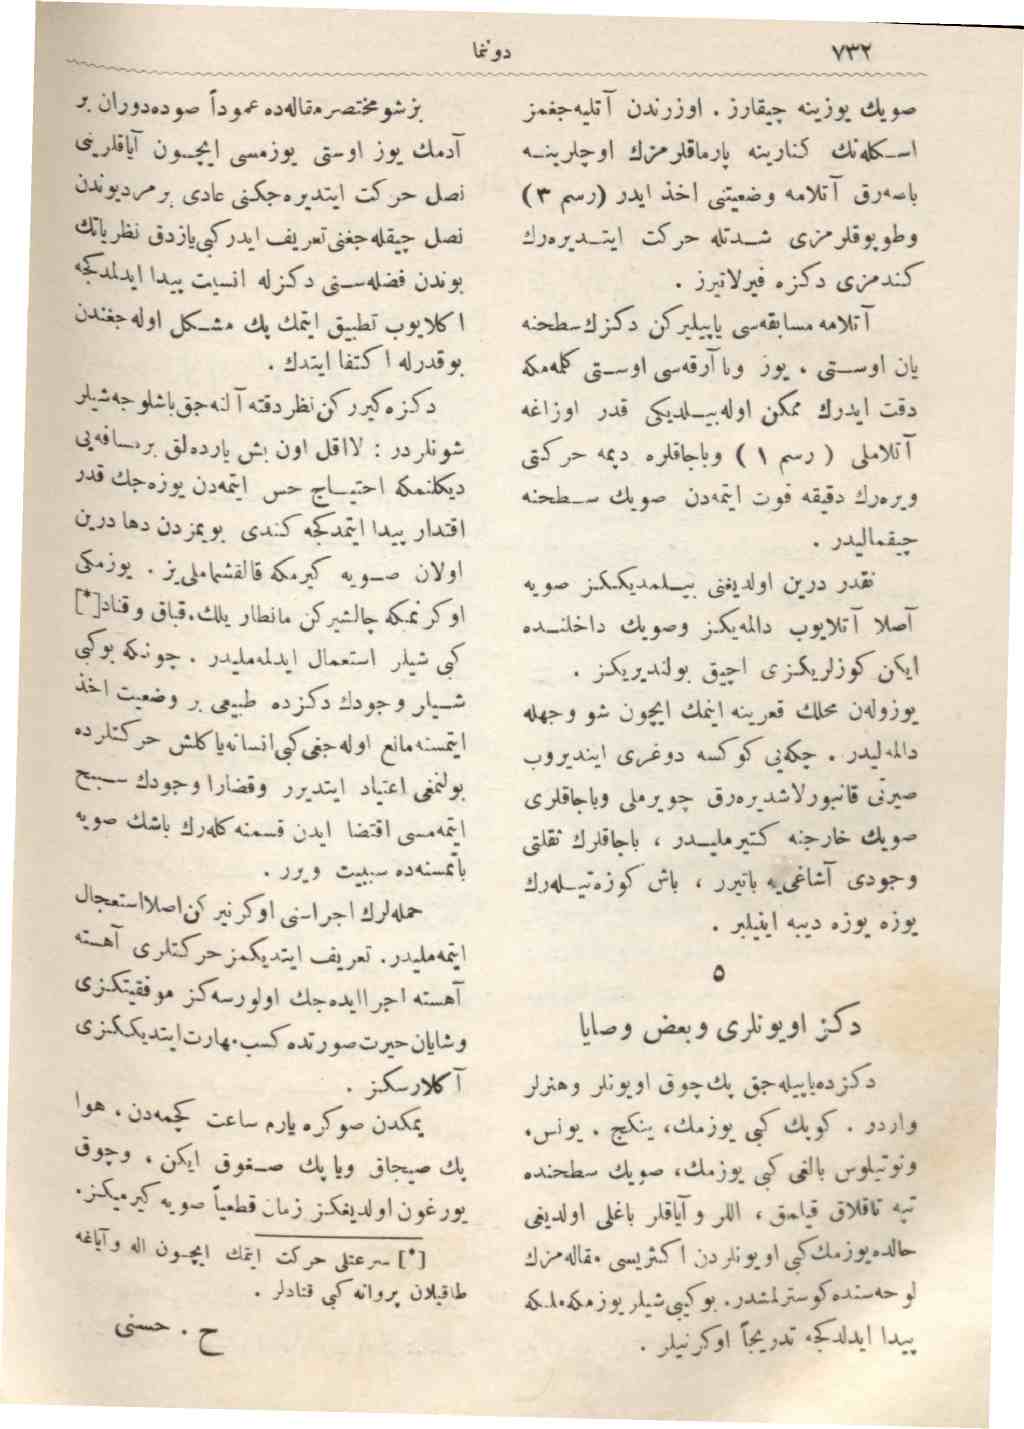 ٧٣٢
دوننما
صويك يوزينه چيقارز . اوزرندن آتليه‌جغمز
اسكله‌نك كنارينه پارماقلرمزك اوچلرينه
باصه‌رق آتلامه وضعيتنى اخذ ايدر (رسم ٣)
وطوپوقلرمزى شدتله حركت ايتديره‌رك
كندمزى دكزه فيرلاتيرز .
آتلامه مسابقه‌سى ياپيليركن دكزك سطحنه
يان اوستى ، يوز ويا آرقه‌سى اوستى كلمه‌مكه
دقت ايدرك ممكن اوله‌بيلديكى قدر اوزاغه
آتلاملى ( رسم ١ ) وباجاقلره ديمه حركتى
ويره‌رك دقيقه فوت ايتمه‌دن صويك سطحنه
چيقماليدر .
نقدر درين اولديغنى بيلمديككز صويه
آصلا آتلايوب دالمه‌يكز وصويك داخلنده
ايكن كوزلريكزى اچيق بولنديريكز .
يوزوله‌ن محلك قعرينه اينمك ايچون شو وجهله
دالمه‌ليدر . چكه‌يى كوكسه دوغرى اينديروب
صيرتى قانبورلاشديره‌رق چويرملى وباجاقلرى
صويك خارجنه كتيرمليدر ، باجاقلرك ثقلتى
وجودى آشاغى‌يه باتيرر ، باش كوزه‌تيله‌رك
يوزه يوزه ديبه اينيلير .
٥
دكز اويونلرى وبعض وصايا
دكزده‌ياپيله‌جق پك‌چوق اويونلر وهنرلر
واردر . كوپك كبى يوزمك، ينكج . يونس .
ونوتيلوس بالغى كبى يوزمك، صويك سطحنده
تپه تاقلاق قيلمق ، اللر و آياقلر باغلى اولديغى
حالده‌يوزمك‌كبى اويونلردن اكثريسى مقاله‌مزك
لوحه‌سنده‌كوسترلمشدر. بوكبى‌شيلر يوزمكه‌ملكه
پيدا ايدلدكجه تدريجاً اوكرنيلر .
بزشومختصرمقاله‌ده عموداً صوده‌دوران بر
آدمك يوز اوستى يوزمسى ايچون آياقلرينى
نصل حركت ايتديره‌جكنى عادى بر مرديوندن
نصل چيقله‌جغنى‌تعريف ايدركبى‌يازدق نظرياتك
بوندن فضله‌سنى دكزله انسيت پيدا ايدلمدكجه
اكلايوب تطبيق ايتمك پك مشكل اوله‌جغندن
بوقدرله اكتفا ايتدك .
دكزه‌كيرركن‌نظردقته آلنه‌جق‌باشلوجه‌شيلر
شونلردر : لااقل اون بش يارده‌لق برمسافه‌يى
ديكلنمكه احتياج حس ايتمه‌دن يوزه‌جك قدر
اقتدار پيدا ايتمدكجه كندى بويمزدن دها درين
اولان صويه كيرمكه قالقشماملى‌يز . يوزمكى
اوكرنمكه چالشيركن مانطار يلك،قباق وقناد[*]
كبى شيلر استعمال ايدلمه‌مليدر . چونكه بوكبى
شيلر وجودك دكزده طبيعى بر وضعيت اخذ
ايتمسنه‌مانع اوله‌جغى‌كبى‌انسانه‌ياكلش حركتلرده
بولنمغى اعتياد ايتديرر وقضارا وجودك سبح
ايتمه‌مسى اقتضا ايدن قسمنه‌كله‌رك باشك صويه
باتمسنه‌ده سببيت ويرر .
حمله‌لرك اجراسنى اوكرنيركن‌اصلااستعجال
ايتمه‌مليدر. تعريف ايتديكمز حركتلرى آهسته
آهسته اجرا ايده‌جك اولورسه‌كز موفقيتكزى
وشايان‌حيرت‌صورتده كسب‌مهارت‌ايتديككزى
آكلارسكز .
يمكدن صوكره يارم ساعت كچمه‌دن ، هوا
پك صيجاق ويا پك صغوق ايكن ، وچوق
يورغون‌اولديغكز زمان قطعياً صويه كيرميكز.
[*] سرعتلى حركت ايتمك ايچون اله و آياغه
طاقيلان پروانه كبى قنادلر .
ح . حسنى